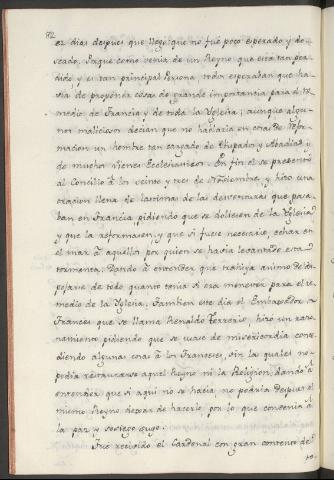 82
ez dias despues que llego que no fue poco esperado y de
seado. Porque como venia de un Reyno que esta tan per
dido, y es tan principal Persona todos esperaban que ha
via de proponer cosas de grande importancia para el re
medio de Francia y de toda la Yglesia; aunque algu
nos maliciosos decian que no hablaria en cosas de Refor
macion un hombre tan cargado de Obispados y Abadias y
de muchos vienes Ecclesiasticos. En fin el se presento
al Concilio a los veinte y tres de Noviembre, y hizo una
oracion llena de lacrimas de las desventuras que pasa
ban en Francia pidiendo que se doliesen de la Yglesia
y que la reformasen, y que si fuese necesario, echar en
el mar a aquellos por quien se havia levantado esta
tormenta. Dando a entender que trahia animo de des
pojarse de todo quanto tenia si era menester para el re
medio de la Yglesia. Tambien este dia el Embaxador
Frances que se llama Renaldo Ferrerio, hizo un razo
namiento pidiendo que se usase de misericordia conce
diendo algunas cosas a los Franceses, sin las quales no
podia restaurarse aquel Reyno ni la Religion, dando a
entender que si aqui no se hacia no podria despues el
mismo Reyno dexar de hacerlo, por lo que convenia a
la paz y sosiego suyo.
Fue recivido el Cardenal con gran contento de